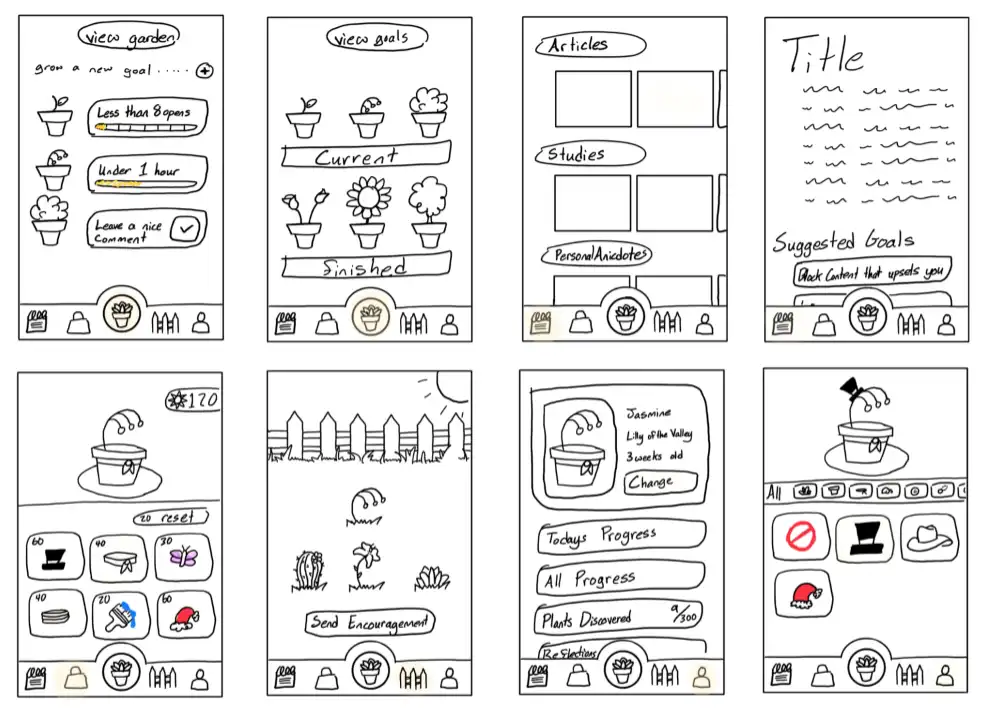 view garden
grow a new goal ..... +
Less than 8 opens
Under 1 hour
Leave a nice
comment
view goals
Current
Finished
Articles
Studies
Personal Anicdotes
Title
Suggested Goals
Block Content that upsets you
120
20 reset
60
40
30
40
20
60
Send Encouragement
Jasmine
Lilly of the Valley
3 weeks old
Change
Todays Progress
All Progress
Plants Discovered 9/300
Reflections
All